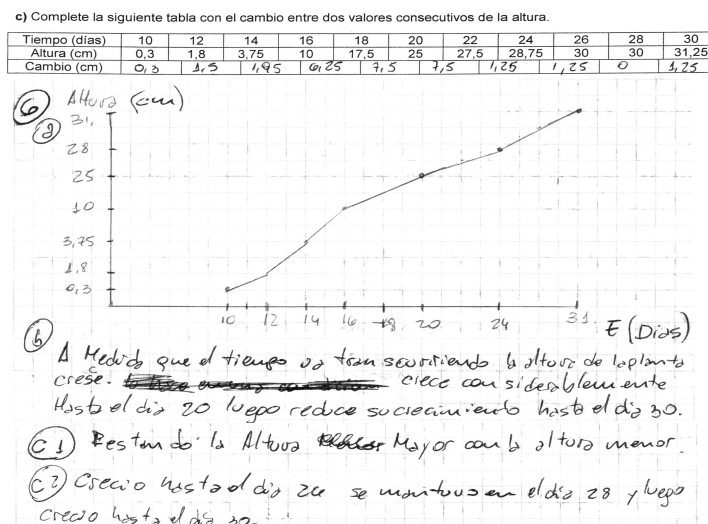 c) Complete la siguiente tabla con el cambio entre dos valores consecutivos de la altura.
Tiempo (días) 10 12 14 16 18 20 22 24 26 28 30
Altura (cm) 0,3 1,8 3,75 10 17,5 25 27,5 28,75 30 30 31,25
Cambio (cm) 0,3 1,5 1,95 6,25 7,5 7,5 1,25 1,25 0 1,25
6 Altura (cm)
a 31,
28
25
10
3,75
1,8
0,3
10 12 14 16 18 20 24 31 E (Dias)
b
A Medida que el tiempo va transcurriendo la altura de la planta
crese. crece considerablemente
Hasta el dia 20 luego reduce su crecimiento hasta el dia 30.
C 1) Restando la Altura Mayor con la altura menor.
C 2) Crecio hasta el dia 26 se mantuvo en el dia 28 y luego
crecio hasta el dia 30.